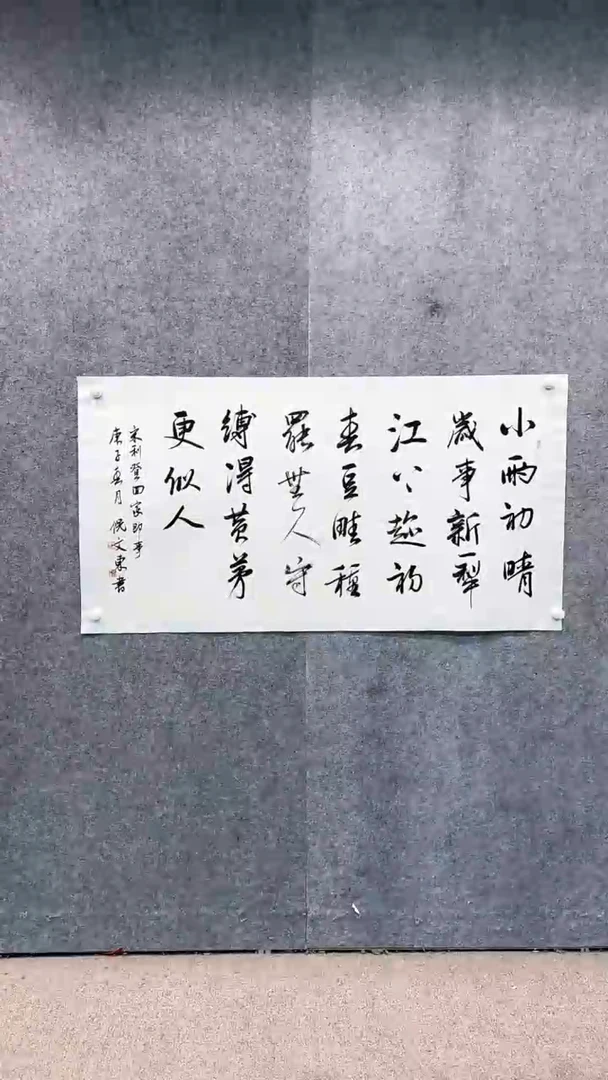 小雨初晴
歲事新一犁
江上趂初
春豆畦種
罷無人守
縛得黄茅
更似人
宋利登田家即事
庚子夏月倪文東書